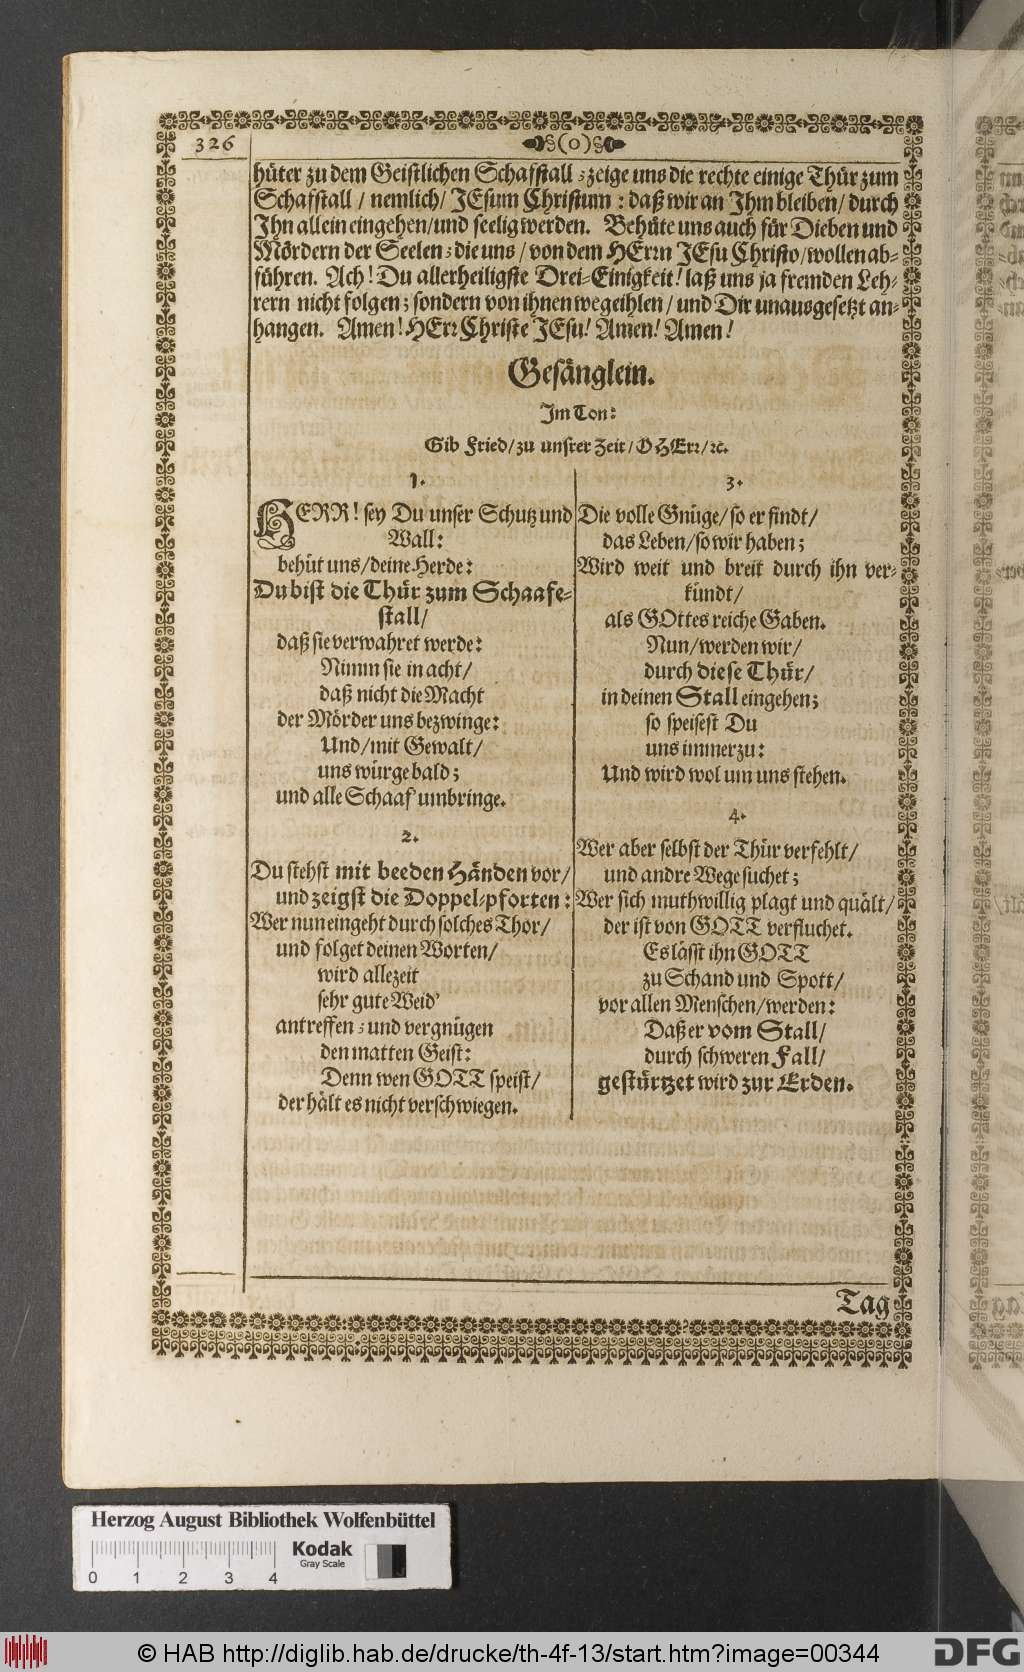 326
(o)
hüter zu dem Geistlichen Schafstall ; zeige uns die rechte einige Thür zum
Schafstall / nemlich / JEsum Christum : daß wir an Ihm bleiben / durch
Ihn allein eingehen / und seelig werden. Behüte uns auch für Dieben und
Mördern der Seelen ; die uns / von dem HErrn JEsu Christo / wollen ab-
führen. Ach ! Du allerheiligste Drei-Einigkeit ! laß uns ja fremden Leh-
rern nicht folgen ; sondern von ihnen wegeihlen / und Dir unausgesetzt an-
hangen. Amen ! HErr Christe JEsu ! Amen ! Amen !
Gesänglein.
Im Ton:
Gib Fried / zu unsrer Zeit / O HErr / ꝛc.
1.
HERR ! sey Du unser Schutz und
Wall:
behüt uns / deine Herde:
Du bist die Thür zum Schaafe-
stall /
daß sie verwahret werde:
Nimm sie in acht /
daß nicht die Macht
der Mörder uns bezwinge:
Und / mit Gewalt /
uns würge bald ;
und alle Schaaf' umbringe.
2.
Du stehst mit beeden Händen vor /
und zeigst die Doppel-pforten :
Wer nun eingeht durch solches Thor /
und folget deinen Worten /
wird allezeit
sehr gute Weid'
antreffen ; und vergnügen
den matten Geist:
Denn wen GOTT speist /
der hält es nicht verschwiegen.
3.
Die volle Gnüge / so er findt /
das Leben / so wir haben ;
Wird weit und breit durch ihn ver-
kündt /
als GOttes reiche Gaben.
Nun / werden wir /
durch diese Thür /
in deinen Stall eingehen ;
so speisest Du
uns immerzu:
Und wird wol um uns stehen.
4.
Wer aber selbst der Thür verfehlt /
und andre Wege suchet ;
Wer sich muthwillig plagt und quält /
der ist von GOTT verfluchet.
Es lässt ihn GOTT
zu Schand und Spott /
vor allen Menschen / werden:
Daß er vom Stall /
durch schweren Fall /
gestürtzet wird zur Erden.
Tag
Herzog August Bibliothek Wolfenbüttel
Kodak
Gray Scale
0 1 2 3 4
© HAB http://diglib.hab.de/drucke/th-4f-13/start.htm?image=00344
DFG